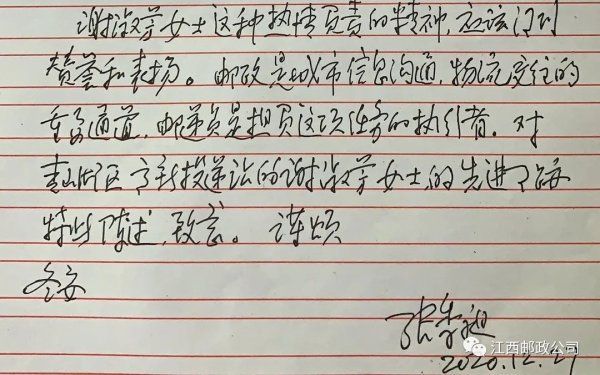 谢淑芳女士这种热情负责的精神，应该得到
赞誉和表扬。邮政是城市信息沟通，物流交往的
重要通道，邮递员是担负这项任务的执行者。对
青山湖区高新投递站的谢淑芳女士的先进事迹
特此陈述，致意。谨颂
冬安
张
2020.12.21
江西邮政公司